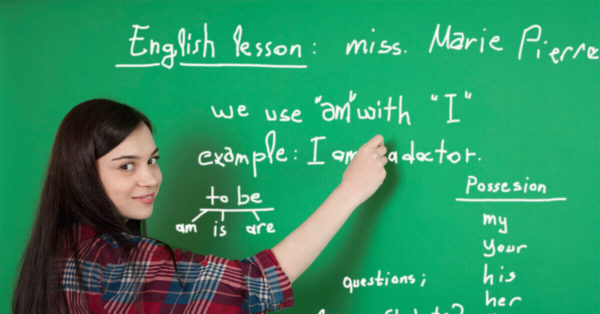 English lesson: miss. Marie Pierre
we use "am" with "I"
example: I am a doctor.
to be
am is are
Possesion
my
your
his
her
questions;